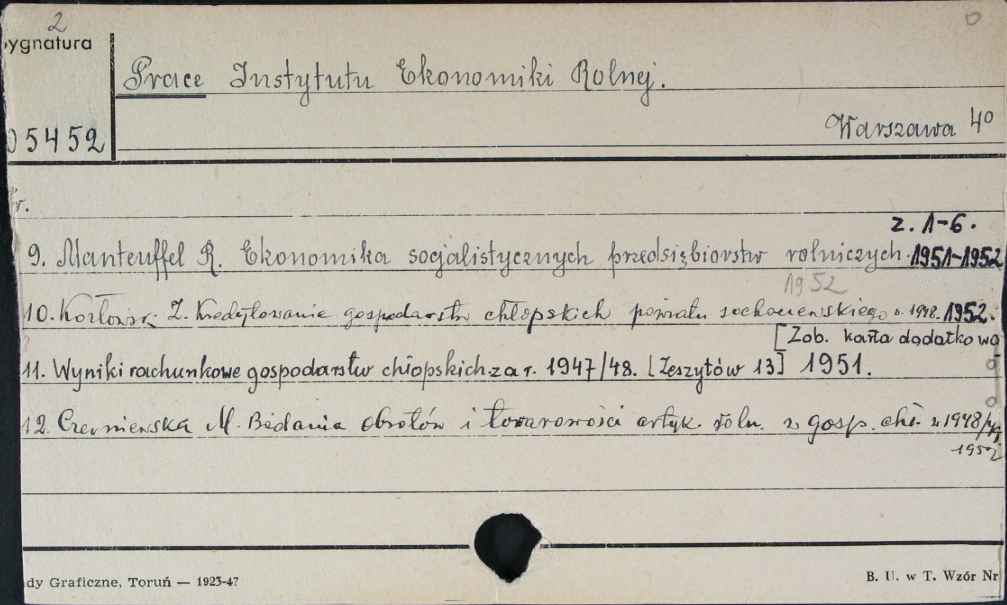 2
ygnatura
Prace Instytutu Ekonomiki Rolnej.
05452
Warszawa 4°
r.
z. 1-6.
9. Manteuffel R. Ekonomika socjalistycznych przedsiębiorstw rolniczych. 1951-1952
1952
10. Kozłowski Z. Kredytowanie gospodarstw chłopskich powiatu sochaczewskiego w 1948. 1952.
[Zob. karta dodatkowa
11. Wyniki rachunkowe gospodarstw chłopskich za r. 1947/48. [Zeszytów 13] 1951.
12. Czerniewska M. Badania obrotów i towarowości artyk. roln. w gosp. chł. w 1948/49
1952
dy Graficzne, Toruń — 1923-47
B. U. w T. Wzór Nr